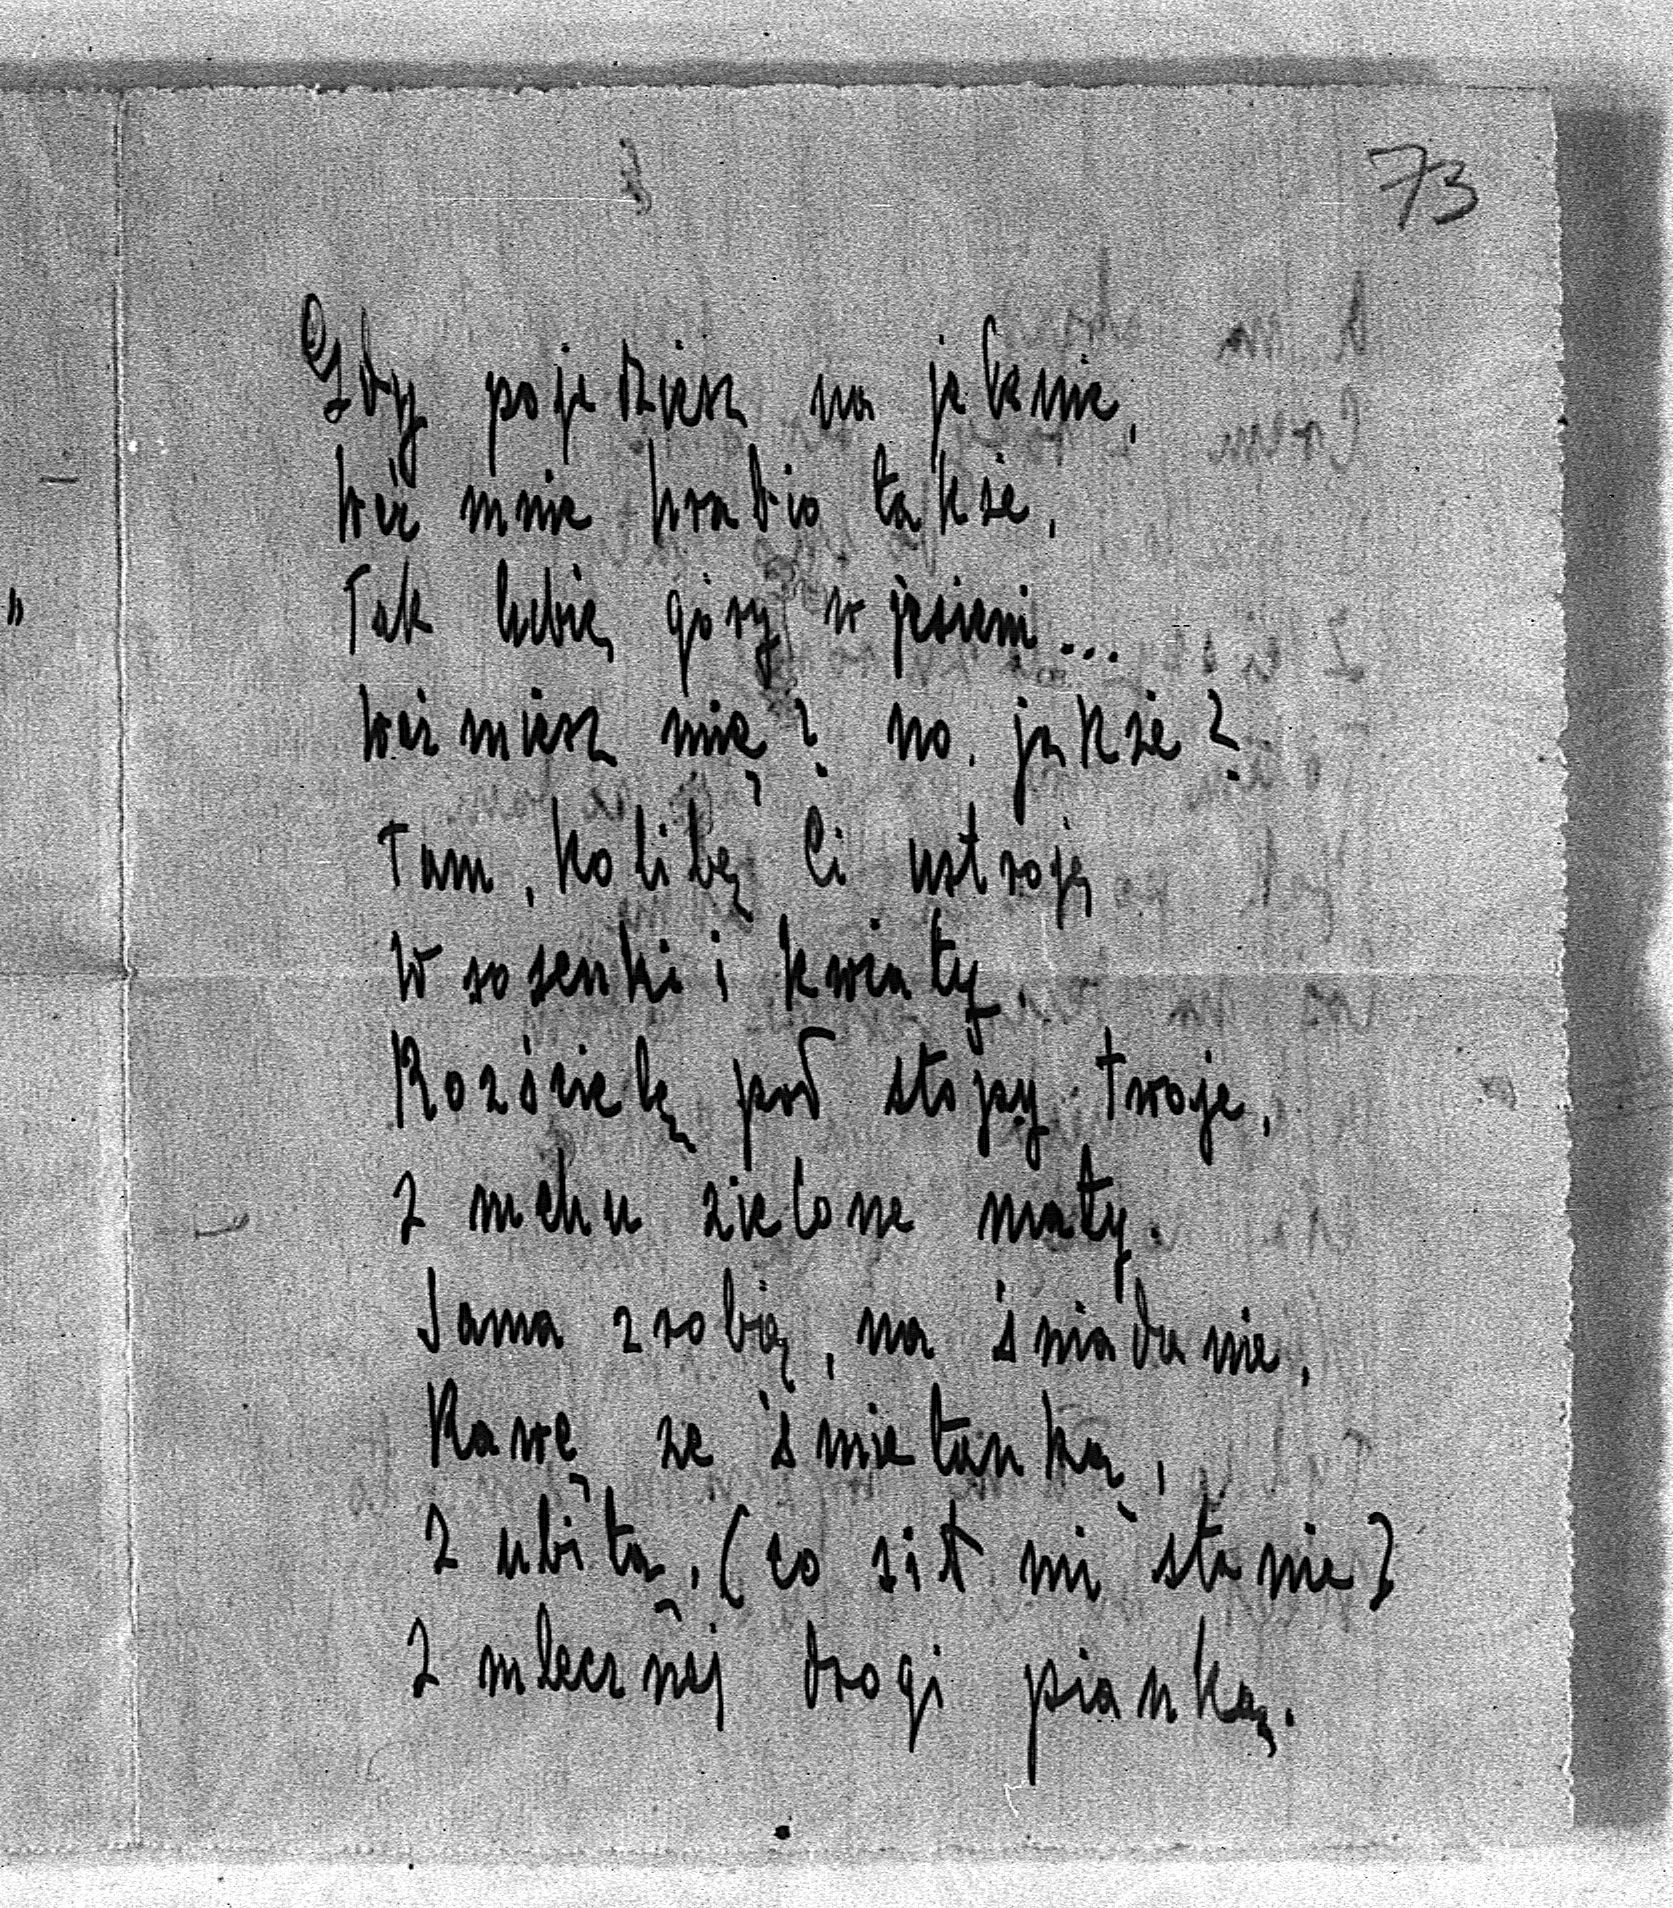 73
Gdy pojedziesz na jelenie,
Weź mnie hrabio także,
Tak lubię góry w jesieni...
Weźmiesz mię? no, jakże?
Tam, kolibę Ci ustroję
W sosenki i kwiaty,
Rozścielę pod stopy Twoje,
Z mchu zielone maty.
Sama zrobię, na śniadanie,
Kawę ze śmietanką,
Z ubitą, (co sił mi stanie)
Z mlecznej drogi pianką.